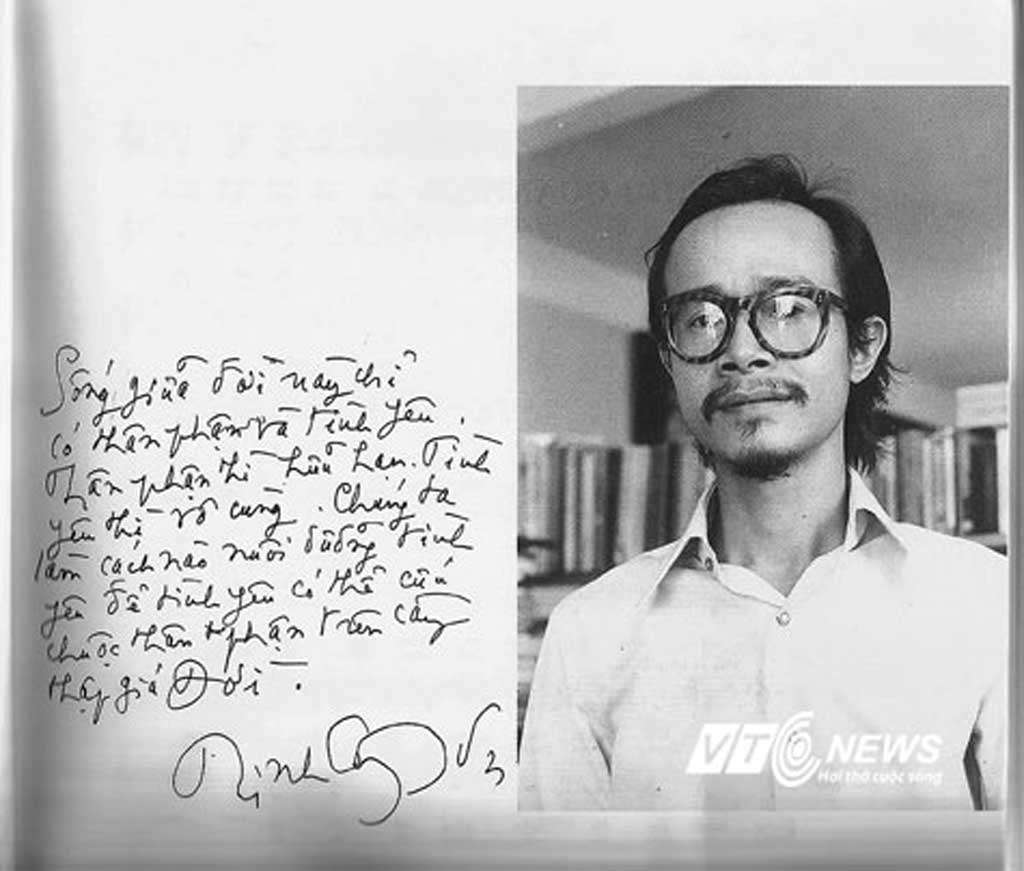 Sống giữa đời này chỉ
có thân phận và tình yêu.
Thân phận thì hữu hạn. Tình
yêu thì vô cùng. Chúng ta
làm cách nào nuôi dưỡng tình
yêu để tình yêu có thể cứu
chuộc thân phận trên cây
thập giá Đời.
Trịnh Công Sơn
VTC NEWS
Hơi thở cuộc sống